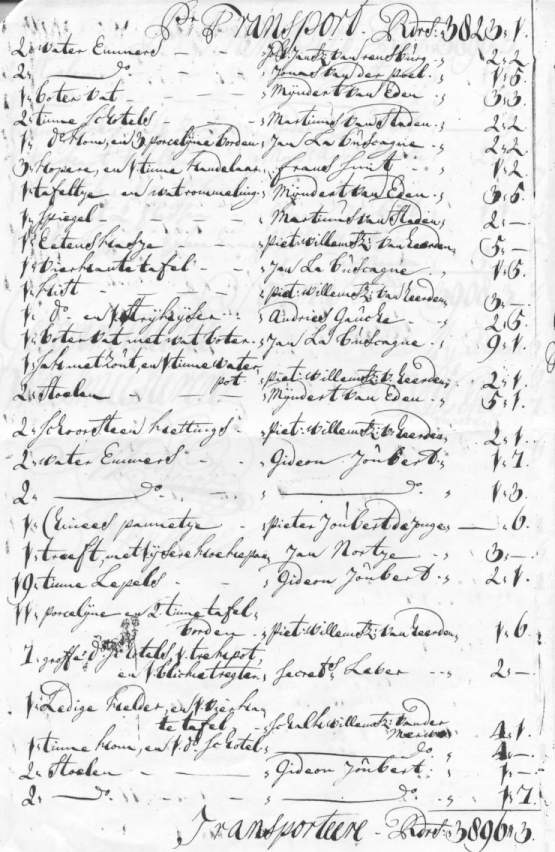 Pr. Transport - Rdrs: 3823,, 1.
2,, water Emmers - - ,, Pt. Jantz: van rensburg ,, 2,, 2
2,, —— do. - - ,, Jonas van der poel ,, 1,, 5
1,, boter vat - - ,, Mijndert van Eden ,, 3,, 3.
2,, tinne schotels - - ,, Martinus van Staden ,, 2,, 2
1,, do. kom, en 3 porcelijne borden ,, Jan La Buscagne ,, 2,, 2
3,, kopere, en 1 tinne kandelaar ,, frans smit ,, 1,, 2
1,, tafeltje en wat rommeling ,, Mijndert van Eden ,, 3,, 5
1,, spiegel - ,, Martinus van Staden ,, 2,, —
1,, Eetens kasje - ,, piet: willemsz: van heerden ,, 5,, —
1,, vierkante tafel - ,, Jan La Buscagne ,, 1,, 5.
1,, kist - ,, piet: willemsz: van heerden ,, 3,, —
1,, do. en 1 strijkijser ,, andries Gaucke ,, 2,, 5
1,, boter vat met wat boter ,, Jan La Buscagne ,, 9,, 1.
1,, sak met zout, en 1 tinne water
pot ,, piet: willemsz: v. heerden ,, 2,, 1.
2,, stoelen - - ,, Mijndert van Eden ,, 5,, 1.
2,, schoorsteen kettings - ,, piet: willemsz: v. heerden ,, 2,, 1.
2,, water Emmers - - ,, Gideon Joubert ,, 1,, 7.
2,, —— do. - - ,, —— do. ,, 1,, 3.
1,, Chinees pannetje - ,, pieter Joubert de jonge ,, — ,, 6.
1,, treeft, met ijsere koekepan ,, Jan Nortje ,, 3,, —
19,, tinne Lepels - - ,, Gideon Joubert ,, 2,, 1.
11,, porcelijne en 2 tinne tafel
borden ,, piet: willemsz: van heerden ,, 1,, 6
7. groffe do. schotels 1 trekpot
en 1 blikke tregter ,, secrets. Lever ,, 2,, —
1,, Ledige kelder, en 1
tafel ,, schalk willemsz: van der
Merwe ,, 4,, 1.
1,, tinne kom, en 1 do. schotel ,, —— do. ,, 4,, —
2,, stoelen - ,, Gideon Joubert ,, 1,, —
2,, —— do. - - ,, —— do. ,, 1,, 7.
Transporteere - Rdrs: 3896,, 3.